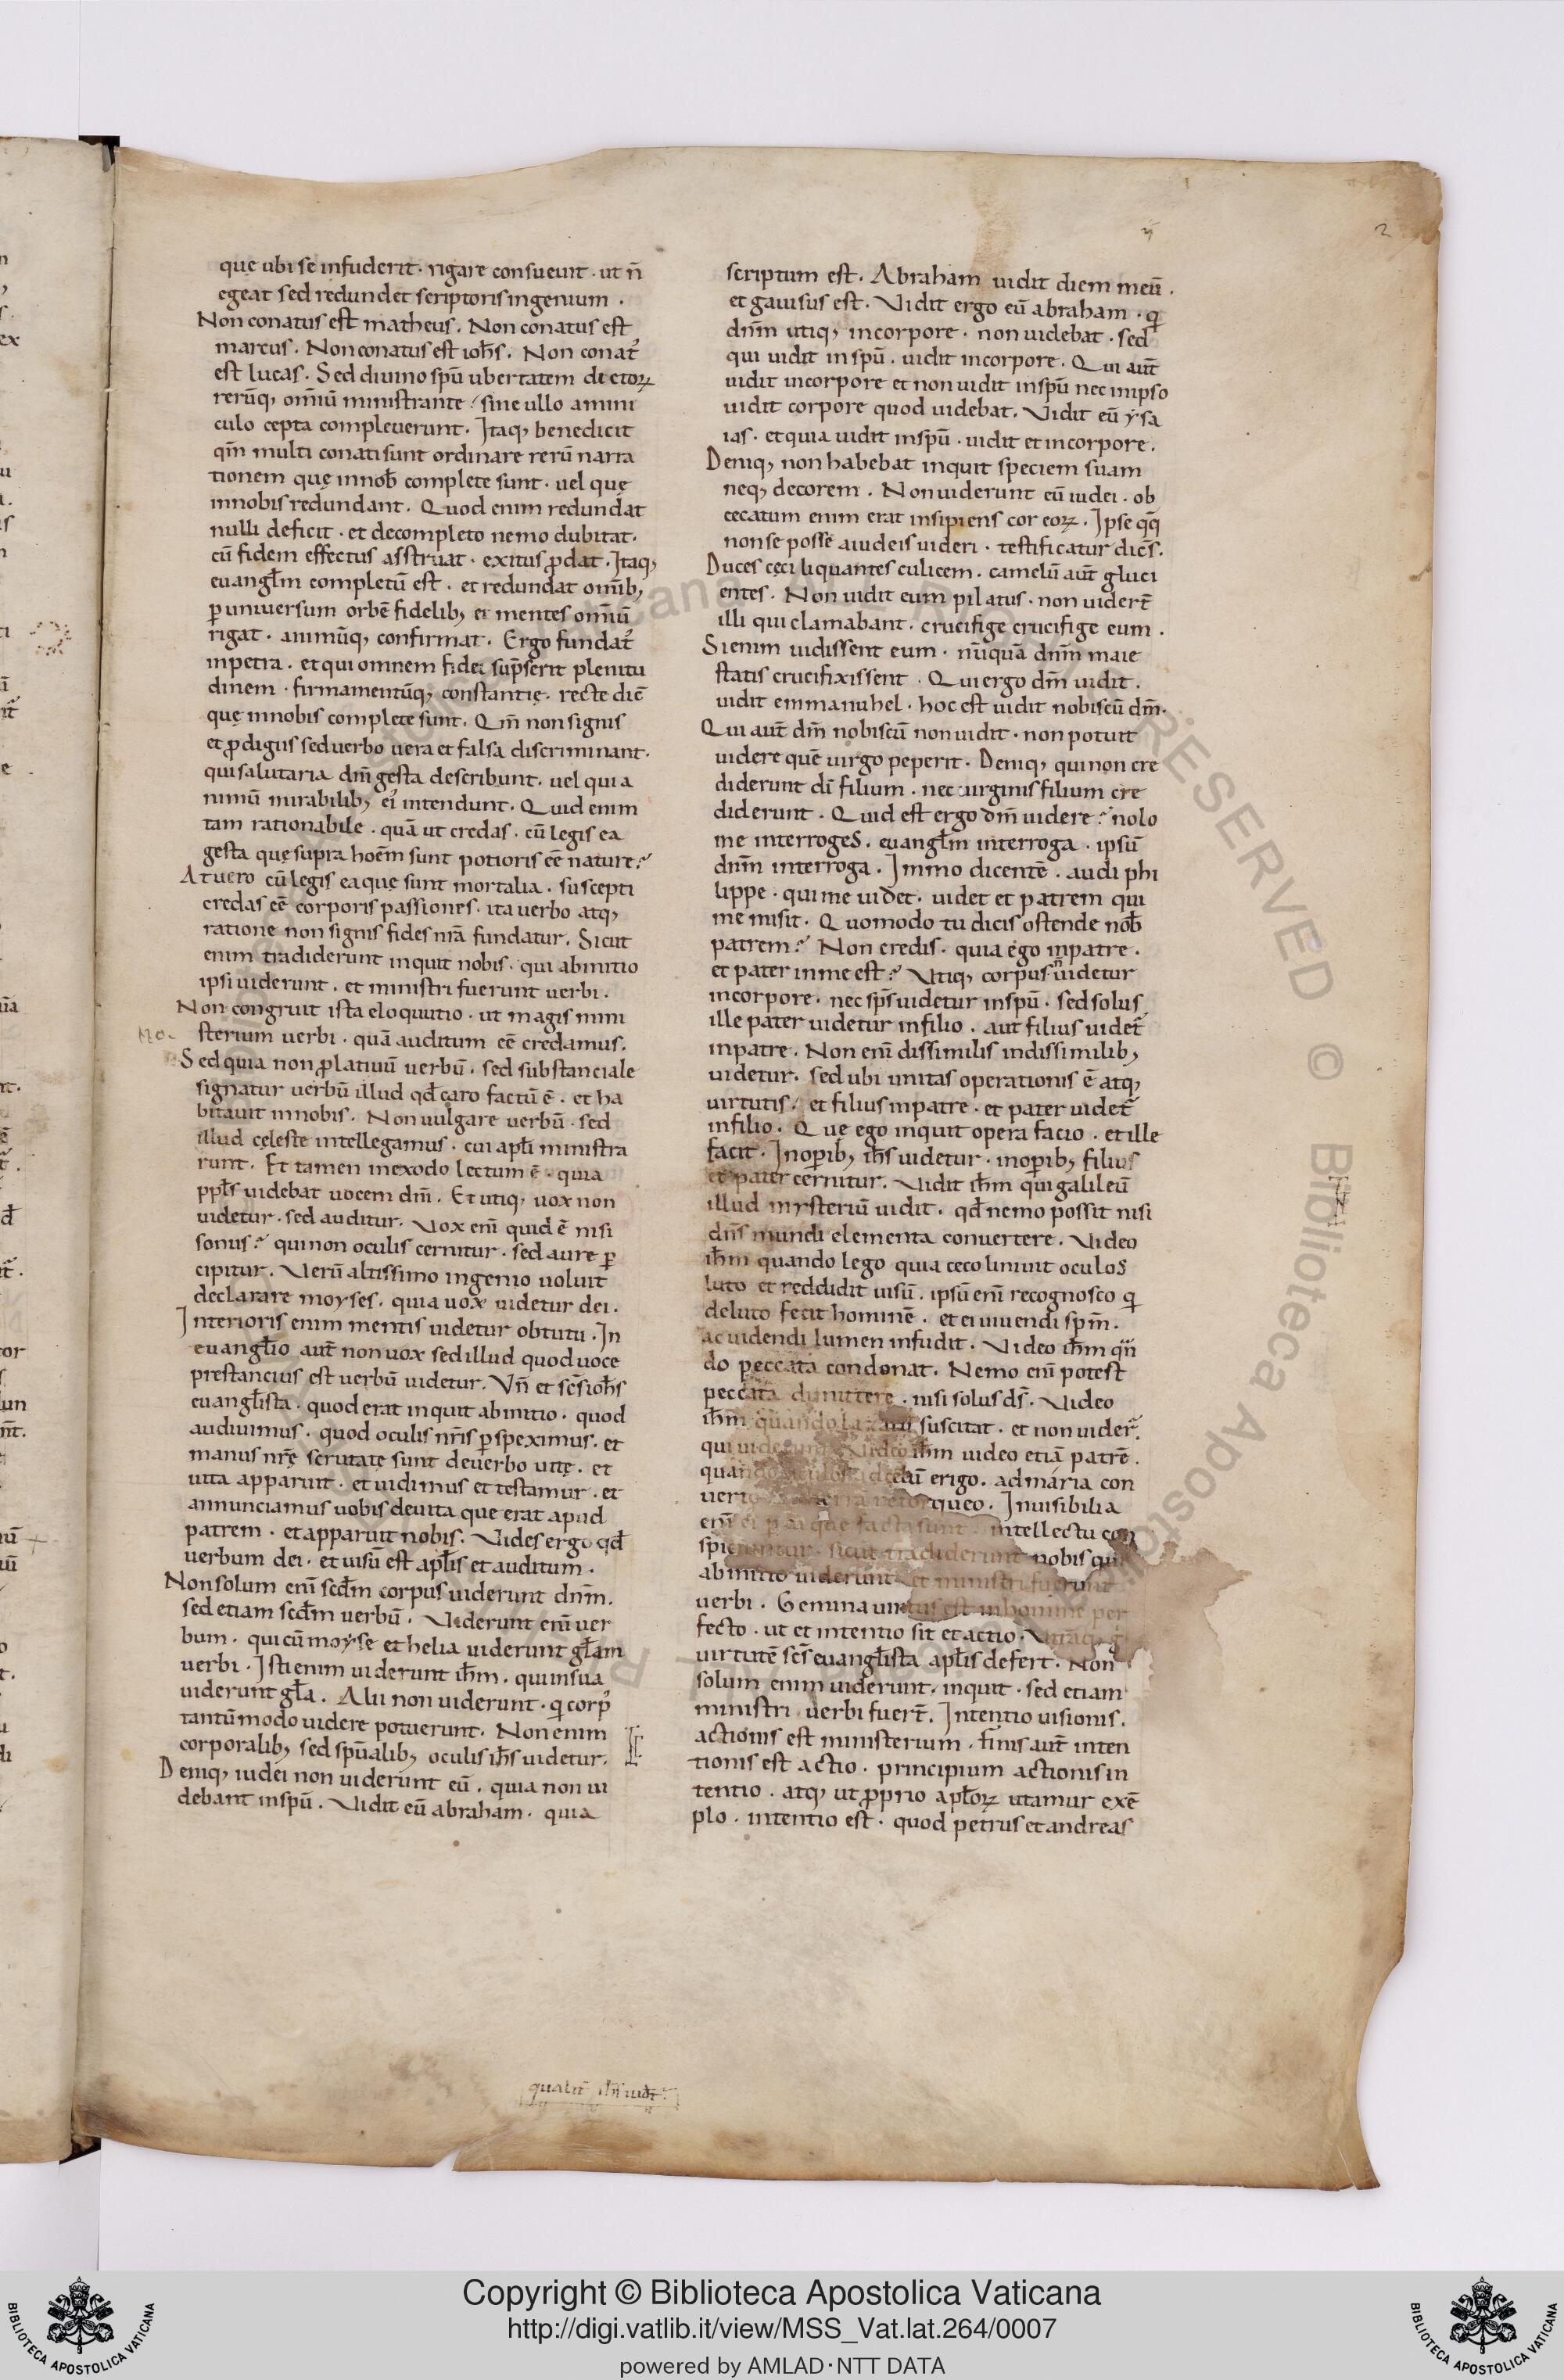 quę ubi se infuderit · rigare consueuit · ut n̄
egeat sed redundet scriptoris ingenium .
Non conatus est matheus . Non conatus est
marcus . Non conatus est ioh̄s . Non conat᷒
est lucas . Sed diuino spū ubertatem dictoꝝ
rerūq, om̄iū ministrante / sine ullo amini
culo cepta compleuerunt . Itaq, benedicit
qm̄ multi conati sunt ordinare rerū narra
tionem quę in nob̄ complete sunt · uel quę
in nobis redundant . Quod enim redundat
nulli deficit · et de completo nemo dubitat ·
cū fidem effectus asstruat · exitus ꝓdat . Itaq,
euangl̄m completū est . et redundat om̄ib,
ꝑ uniuersum orbē fidelib, et mentes om̄iū
rigat · animūq, confirmat . Ergo fundat᷒
in petra . et qui omnem fidei sup̄serit plenitu
dinem · firmamentūq, constantię . recte dic̄
quę in nobis complete sunt . Qm̄ non signis
et ꝓdigiis sed uerbo uera et falsa discriminant ·
qui salutaria dn̄i gesta describunt . uel qui a
nimū mirabilib, ei᷒ intendunt . Quid enim
tam rationabile · quā ut credas · cū legis ea
gesta quę supra hoēm sunt potioris eē nature?
At uero cū legis ea que sunt mortalia . suscepti
credas eē corporis passiones . ita uerbo atq,
ratione non signis fides nr̄a fundatur . Sicut
enim tradiderunt inquit nobis · qui ab initio
ipsi uiderunt . et ministri fuerunt uerbi .
Non congruit ista eloquutio · ut magis mini
sterium uerbi · quā auditum eē credamus .
Sed quia non ꝓlatiuū uerbū . sed substanciale
signatur uerbū illud qd̄ caro factū ē . et ha
bitauit in nobis . Non uulgare uerbū · sed
illud cęleste intellegamus . cui apl̄i ministra
runt . Et tamen in exodo lectum ē · quia
ppl̄s uidebat uocem dn̄i . Et utiq, uox non
uidetur · sed auditur . Vox eni᷒ quid ē nisi
sonus? qui non oculis cernitur · sed aure ꝑ
cipitur . Verū altissimo ingenio uoluit
declarare moyses . quia uox uidetur dei .
Interioris enim mentis uidetur obtutu . In
euangl̄io aut̄ non uox sed illud quod uoce
prestancius est uerbū uidetur . Vn̄ et sc̄s ioh̄s
euangl̄ista · quod erat inquit ab initio . quod
audiuimus . quod oculis nr̄is ꝑspeximus . et
manus nr̄ę scrutate sunt de uerbo uitę . et
uita apparuit . et uidimus et testamur . et
annunciamus uobis de uita que erat apud
patrem . et apparuit nobis . Vides ergo qd̄
uerbum dei . et uisū est apl̄is et auditum .
Non solum eni᷒ scd̄m corpus uiderunt dn̄m .
sed etiam scd̄m uerbū . Viderunt eni᷒ uer
bum . qui cū moyse et helia uiderunt gl̄am
uerbi . Isti enim uiderunt ih̄m . qui in sua
uiderunt gl̄a . Alii non uiderunt · q̄ corp᷒
tantūmodo uidere potuerunt . Non enim
corporalib, sed spūalib, oculis ih̄s uidetur .
Deniq, iudei non uiderunt eū . quia non ui
debant in spū . Vidit eū abraham . quia
scriptum est . Abraham uidit diem meū .
et gauisus est . Vidit ergo eū abraham · q̄
dn̄m utiq, in corpore · non uidebat · sed
qui uidit in spū . uidit in corpore . Qui aut̄
uidit in corpore et non uidit in spū nec in ipso
uidit corpore quod uidebat . Vidit eū ysa
ias . et quia uidit in spū · uidit et in corpore .
Deniq, non habebat inquit speciem suam
neq, decorem . Non uiderunt eū iudei . ob
cecatum enim erat insipiens cor eoꝝ . Ipse qq̄
non se posse a iudeis uideri · testificatur dic̄s .
Duces cęci liquantes culicem . camelū aut̄ gluci
entes . Non uidit eum pilatus · non uider̄t
illi qui clamabant . crucifige crucifige eum .
Si enim uidissent eum · nūquā dn̄m maie
statis crucifixissent . Qui ergo dm̄ uidit .
uidit emmanuhel . hoc est uidit nobiscū dm̄ .
Qui aut̄ dm̄ nobiscū non uidit · non potuit
uidere quē uirgo peperit . Deniq, qui non cre
diderunt di᷒ filium . nec uirginis filium cre
diderunt . Quid est ergo dm̄ uidere? nolo
me interroges . euangl̄m interroga . ipsū
dn̄m interroga . Immo dicentē . audi phi
lippe · qui me uidet . uidet et patrem qui
me misit . Quomodo tu dicis ostende nob̄
patrem? Non credis . quia ego in patre .
et pater in me est? Vtiq, corpus n̄ uidetur
in corpore . nec sp̄s uidetur in spū . sed solus
ille pater uidetur in filio . aut filius uidet᷒
in patre . Non eni᷒ dissimilis in dissimilib,
uidetur . sed ubi unitas operationis ē atq,
uirtutis . et filius in patre · et pater uidet᷒
in filio . Quę ego inquit opera facio . et ille
facit . In oꝑib, ih̄s uidetur . in oꝑib, filius
et pater cernitur . Vidit ih̄m qui galileū
illud mysteriū uidit . qd̄ nemo possit nisi
dn̄s mundi elementa conuertere . Video
ih̄m quando lego quia ceco liniuit oculos
luto et reddidit uisū . ipsū eni᷒ recognosco q̄
de luto fecit hominē . et ei uiuendi spm̄ .
ac uidendi lumen infudit . Video ih̄m qn̄
do peccata condonat . Nemo eni᷒ potest
peccata dimittere . nisi solus ds̄ . Video
ih̄m quando suscitat . et non uider̄
qui ih̄m uideo etiā patrē .
erigo . ad maria con
queo . Inuisibilia
eni᷒ que facta sunt . intellectu con
sicut tradiderunt nobis qui
ab initio uiderunt et ministri fuerunt
uerbi . Gemina uirtus est in homine per
fecto . ut et intentio sit et actio .
uirtutē sc̄s euangl̄ista apl̄is defert . Non
solum enim uiderunt . inquit . sed etiam
ministri uerbi fuer̄t . Intentio uisionis .
actionis est ministerium . finis aut̄ inten
tionis est actio . principium actionis in
tentio . atq, ut ꝓprio apl̄oꝝ utamur exē
plo . intentio est . quod petrus et andreas
2
Copyright © Biblioteca Apostolica Vaticana
http://digi.vatlib.it/view/MSS_Vat.lat.264/0007
powered by AMLAD·NTT DATA
BIBLIOTECA APOSTOLICA VATICANA
BIBLIOTECA APOSTOLICA VATICANA